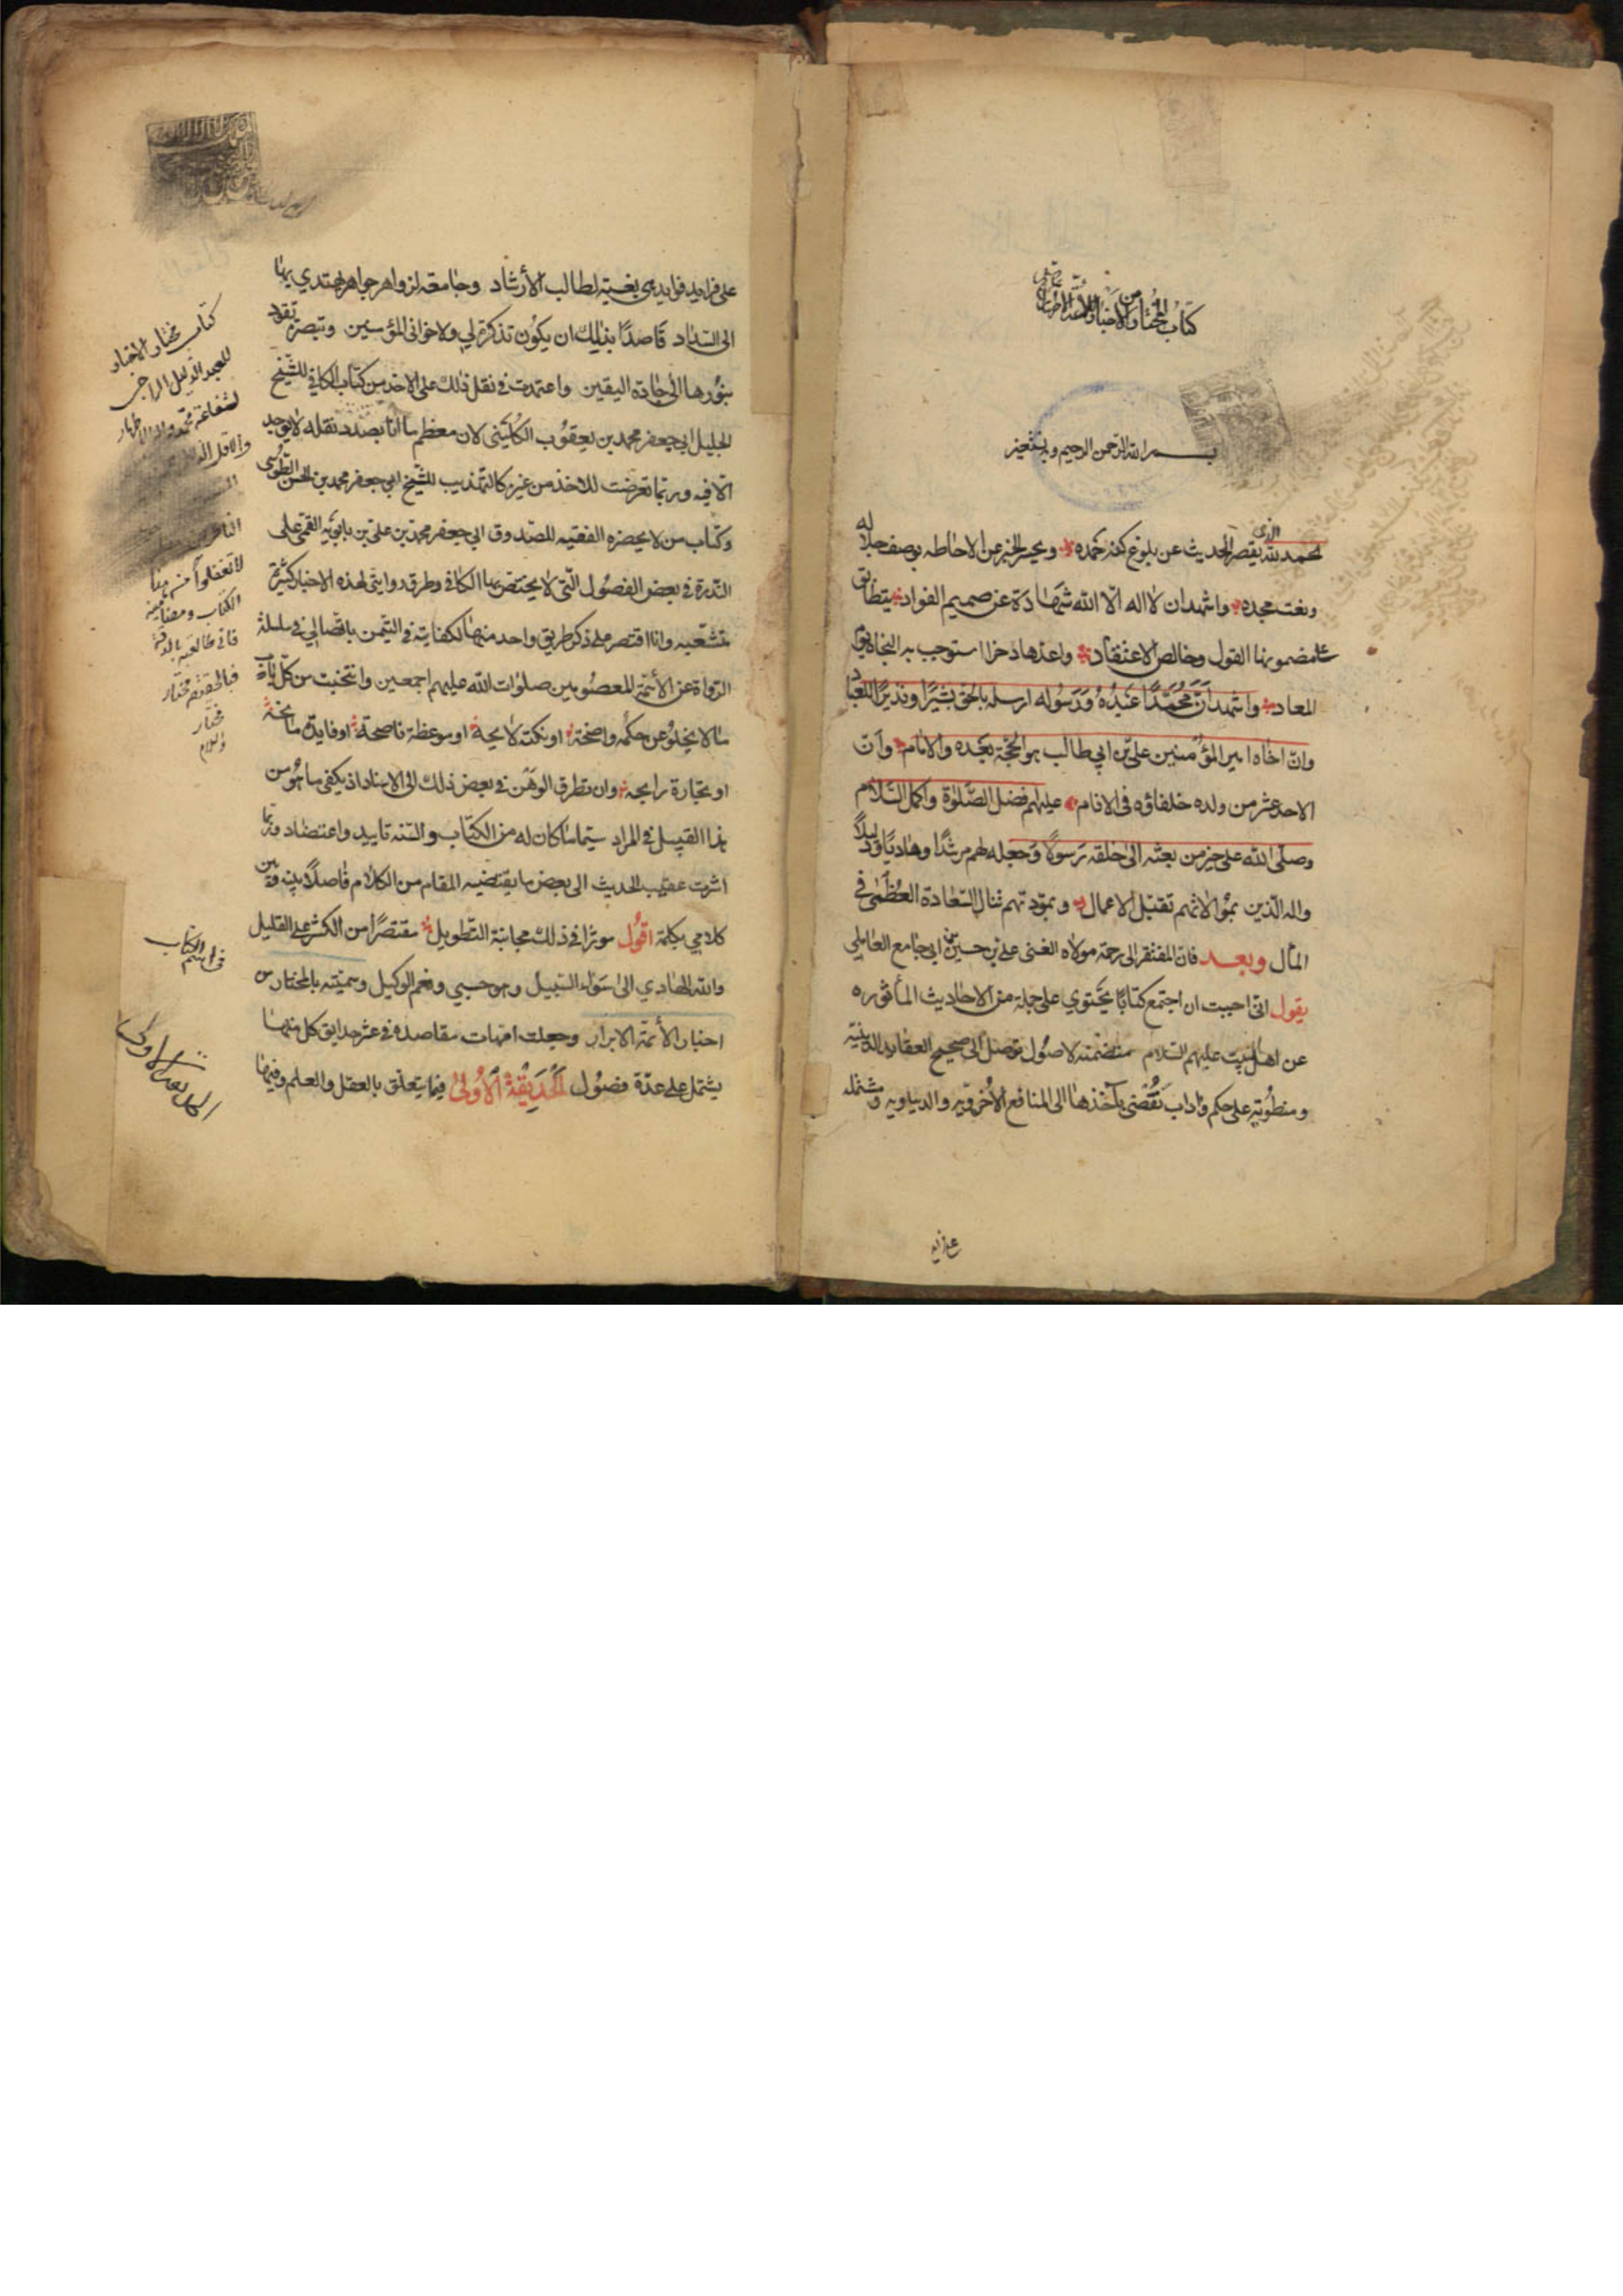 كتاب المختار من الاخبار
بسم الله الرحمن الرحيم وبه نستعين
الحمد لله الذى يقصر الحديث عن بلوغ كنه حمده ويحير الخبر عن الاحاطه بوصف جلاله
ونعت مجده واشهد ان لا اله الا الله شهادة عن صميم الفواد يتطابق
على مضمونها القول وخالص الاعتقاد واعدها ذخرا استوجب به النجاة يوم
المعاد واشهد انّ محمّدًا عَبْدُهُ وَرَسُوله ارسله بالحق بشيرًا ونذيرًا للعباد
وانّ اخاه امير المؤمنين علىّ بن ابي طالب هو الحجّة بعده والامام وانّ
الاحد عشر من ولده خلفاؤه فى الانام عليهم افضل الصّلوة واكمل السّلام
وصلّى الله على خير من بعثه الى خلقه رسولًا وجعله لهم مرشدًا وهاديًا ودليلًا
واله الّذين بموالاتهم تقبل الاعمال وبمودتهم تنال السّعادة العظمى فى
المآل وبعد فانّ المفتقر الى رحمة مولاه الغنى على بن حسين بن ابي جامع العاملي
يقول انى احببت ان اجمع كتابًا يحتوي على جملة من الاحاديث المأثوره
عن اهل البيت عليهم السّلام متضمنة لاصول توصل الى صحيح العقايد الدينية
ومنطوية على حكم واداب تفضى بآخذها الى المنافع الاخرويه والدنياويه ومشتمله
على فرايد
على فرايد فوايد هى بغية لطالب الأرشاد وجامعة لزواهر جواهر يهتدي بها
الى السّداد قاصدًا بذلك ان يكون تذكرة لي ولاخوانى المؤمنين وتبصرة تقود
بنورها الى جادة اليقين واعتمدت فى نقل ذلك على الاخذ من كتاب الكافي للشّيخ
الجليل ابي جعفر محمد بن يعقوب الكُلَيْنى لان معظم ما انا بصدد نقله لا يوجد
الّا فيه وربّما تعرضت للاخذ من غيره كالتهذيب للشّيخ ابي جعفر محمد بن الحسن الطّوسى
وكتاب من لا يحضره الفقيه للصّدوق ابي جعفر محمد بن علىّ بن بابويه القمى على
النّدرة فى بعض الفصول الّتى لا يختص بها الكافى وطرق روايتى لهذه الاخبار كثيرة
متشعّبه وانا اقتصر على ذكر طريق واحد منها لكفايته فى التيمن باتصالي فى سلسلة
الرّواة عن الأئمّة المعصومين صلوات الله عليهم اجمعين وانتخبت من كلّ باب
ما لا يخلو عن حكمة واضحة او نكته لايحة او موعظة ناصحة او فايدة سانحة
او تجارة رابحه وان تطرق الوهن فى بعض ذلك الى الاسناد اذ يكفى ما هو من
هذا القبيل فى المراد سيّما ما كان له من الكتاب والسّنه تاييد واعتضاد وربّما
اشرت عقيب الحديث الى بعض ما يقتضيه المقام من الكلام فاصلًا بينه وبين
كلامي بكلمة اقول موثرًا فى ذلك مجانبة التّطويل مقتصرًا من الكثير على القليل
والله الهادي الى سواء السّبيل وهو حسبي ونعم الوكيل وسمّيته بالمختار من
اخبار الأئمّة الابرار وجعلت امّهات مقاصده فى عشر حدايق كل منها
يشتمل على عدّة فصول الحَدِيْقَةُ الاُولىٰ فيما يتعلّق بالعقل والعلم وفيها
كتاب مختار الاخبار
للعبد الذليل الراجى
لشفاعة محمد واله الاطهار
والاقل
لا تغفلوا
الكتاب
مختار
والسلام
فى اسم الكتاب